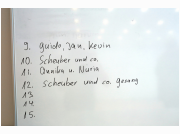 9. Guido, Jan, Kevin
10. Scheuber und co.
11. Annika u. Nuria
12. Scheuber und co. gesang
13
14
15.